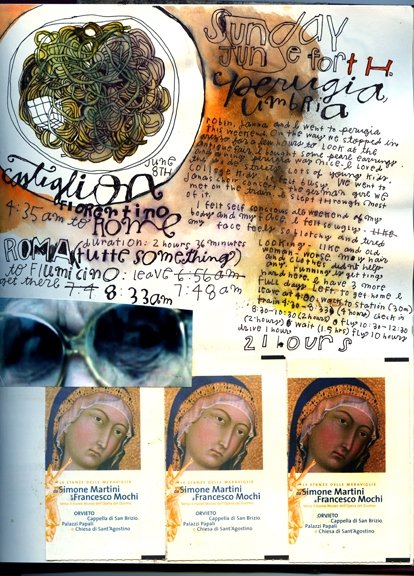 Sunday
June forth.
perugia,
umbria
robin, hanna and I went to perugia
this weekend. On the way we stopped in
for a few hours to look at the
antique fair. I bought some pearl earrings.
perugia was nice &
college town. Lots of young kids.
Janet Jackson concert. We went to
busy. german girl we
met on the train. I slept through most
of it.
I felt self conscious all weekend of my
body and my face. I felt so ugly.
like
so blotchy and tired
looking. like and old
woman. worse. my hair
and didn't help
I'm running out of things
and here & have 3 more
full days left to get home &
leave at 4:00. walk to station (30m)
train 4:30-8:33 (4 hours) check in
8:30-10:30 (2 hours) fly 10:30-12:30
(2 hours) wait (1.5 hrs) fly 10 hours
drive 1 hour
21 hours
JUNE
8TH
castiglion
fiorentino
4:35 am to ROME
(duration: 2 hours 36 minutes
ROMA (tutte something)
to Fiumicino: leave 6:56 am
7:48 am
get there 7:4 8:33am
LE STANZE DELLE MERAVIGLIE
da Simone Martini
a Francesco Mochi
ORVIETO
Cappella di San Brizio
Palazzi Papali
e Chiesa di Sant'Agostino
LE STANZE DELLE MERAVIGLIE
da Simone Martini
a Francesco Mochi
ORVIETO
Cappella di San Brizio
Palazzi Papali
e Chiesa di Sant'Agostino
LE STANZE DELLE MERAVIGLIE
da Simone Martini
a Francesco Mochi
ORVIETO
Cappella di San Brizio
Palazzi Papali
e Chiesa di Sant'Agostino